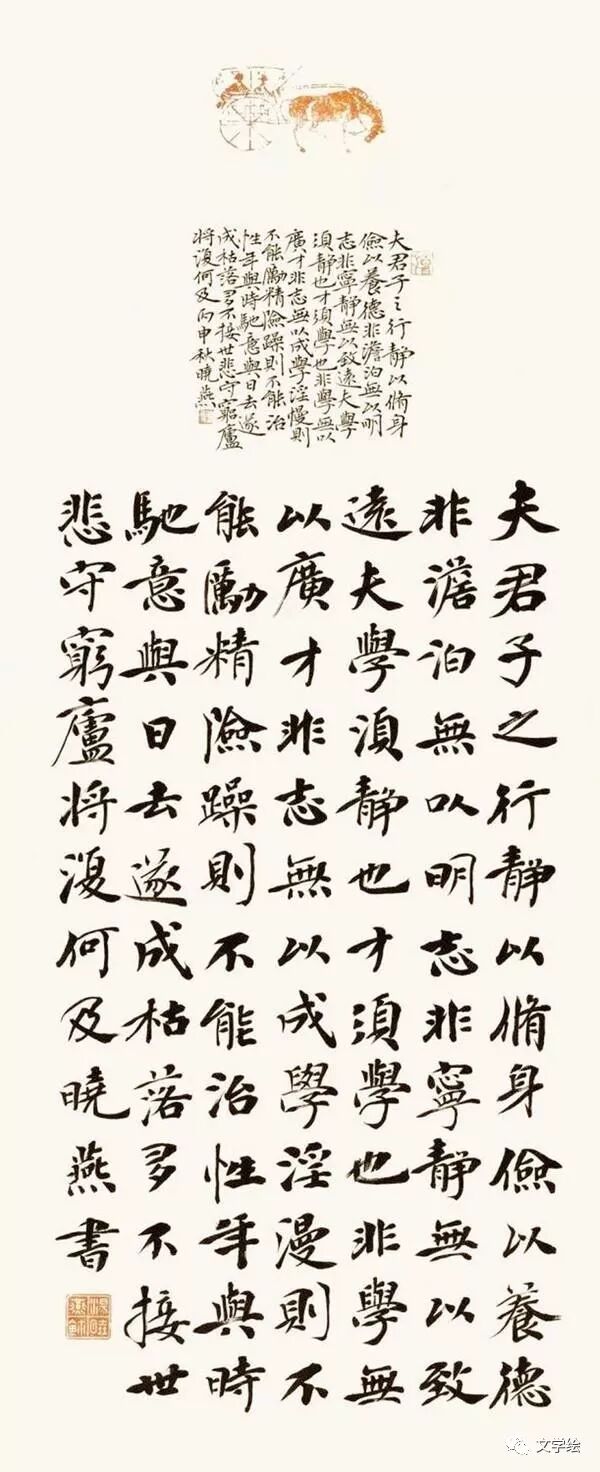 夫君子之行靜以脩身
儉以養德非澹泊無以明
志非寧靜無以致遠夫學
須靜也才須學也非學無以
廣才非志無以成學淫慢則
不能勵精險躁則不能治
性年與時馳意與日去遂
成枯落多不接世悲守窮廬
将復何及丙申秋曉燕
夫君子之行靜以脩身儉以養德
非澹泊無以明志非寧靜無以致
遠夫學須靜也才須學也非學無
以廣才非志無以成學淫漫則不
能勵精險躁則不能治性年與時
馳意與日去遂成枯落多不接世
悲守窮廬将復何及曉燕書
文学绘